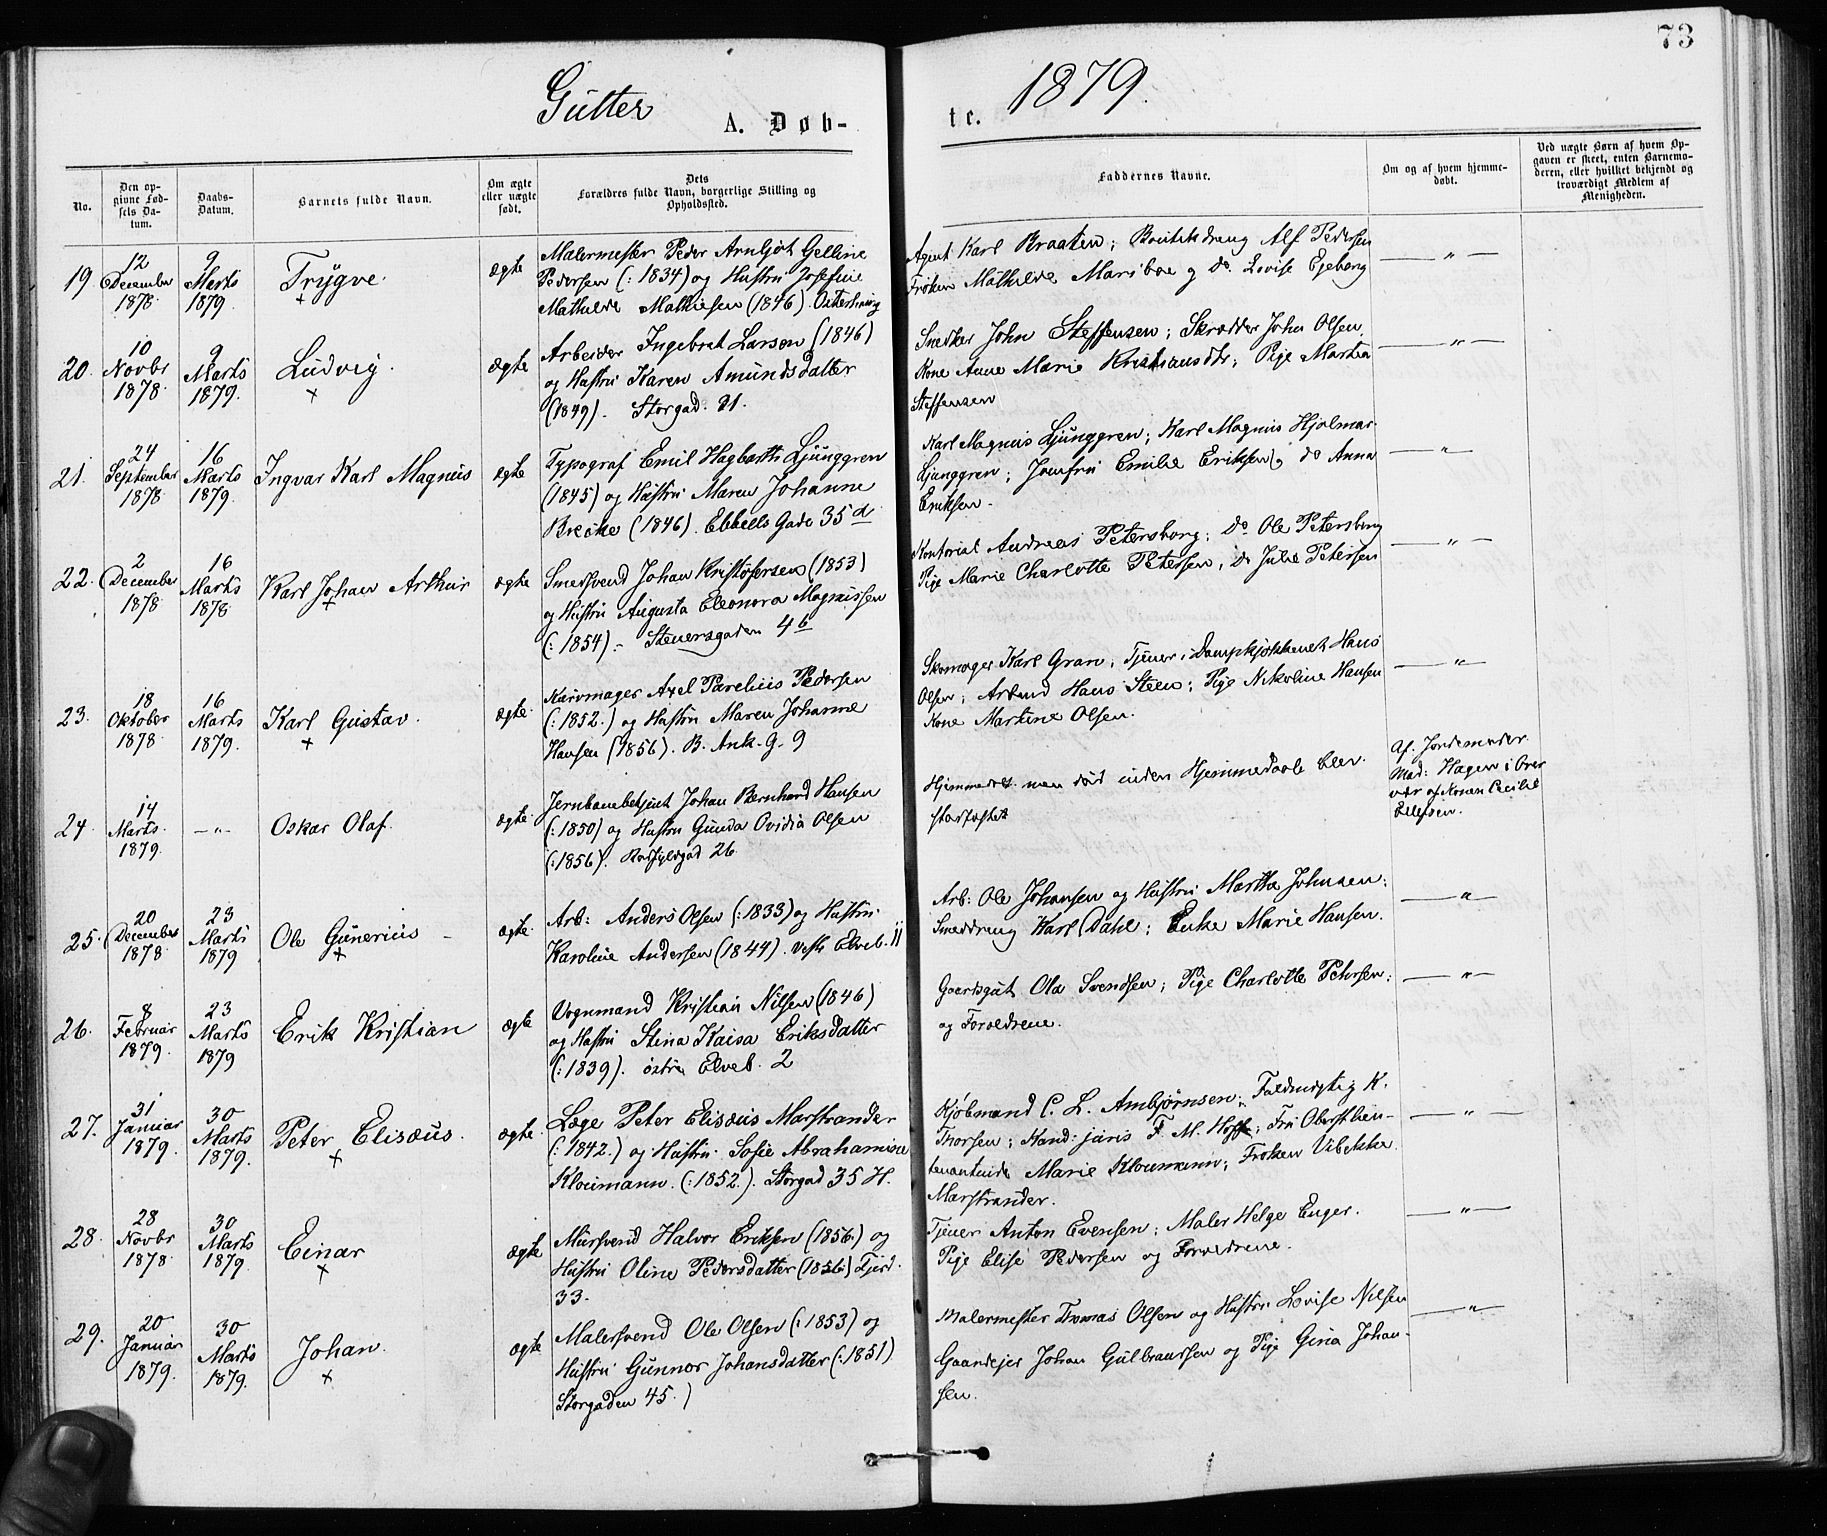 73
Gutter
A. Døb-
te.
1879.
No.
Den op-
givne Fød-
sels Da-
tum.
Daabs-
Datum.
Barnets fulde Navn.
Om ægte
eller uægte
født.
Dets
Forældres fulde Navn, borgerlige Stilling og
Opholdssted.
Faddernes Navne.
Om og af hvem hjemme-
døbt.
Ved uægte Børn af hvem Op-
gaven er skeet, enten Barnemo-
deren, eller hvilket bekjendt og
troværdigt Medlem af
Menigheden.
19
12
December
1878.
9
Marts
1879.
Trygve.
+
ægte
Malermester Peder Arnljot Gelline
Pedersen (: 1834) og Hustru Josefine
Mathilde Mathiesen (1846).
Agent Karl Braaten; Boutikdreng Alf Pedersen
Frøken Mathilde Mariboe og do. Lovise Egeberg
— " —
20.
10
Novbr
1878.
9
Marts
1879.
Ludvig.
+
ægte
Arbeider Ingebret Larsen (1846)
og Hustru Karen Amundsdatter
(1849). Storgad. 21.
Snedker John Steffensen; Skrædder John Olsen
Kone Anne Marie Kristiansdtr; Pige Martea
Steffensen
— " —
21.
24
September
1878
16
Marts
1879.
Ingvar Karl Magnus
ægte
Typograf Emil Hagbarth Ljunggren
(1845) og Hustru Maren Johanne
Brecke (1846). Ebbells Gade 35 d
Karl Magnus Ljunggren; Karl Magnus Hjalmar
Ljunggren; Jomfru Emilie Eriksen og do Anna
Eriksen.
— " —
22.
2
December
1878
16
Marts
1878
Karl Johan Arthur
+
ægte
Smedsvend Johan Kristofersen (1853)
og Hustru Augusta Eleonora Magnussen
(: 1854).- Stenersgaden 4 b
Kontorist Andreas Petersborg; do Ole Petersborg
Pige Marie Charlotte Petersen, do Julie Petersen
— " —
23.
18
Oktober
1878.
16
Marts
1879.
Karl Gustav.
+
ægte.
Kurvmager Axel Parelius Pedersen
(: 1852.) og Hustru Maren Johanne
Hansen (1856). B. Ank. G. 9
Skomager Karl Gran; Tjener i Dampkjøkkenet Hans
Olsen; Arbmd Hans Steen; Pige Nikoline Hansen
Kone Martine Olsen.
— " —
24.
14
Marts.
1879.
— " —
Oskar Olaf.
ægte.
Jernbanebetjent Johan Bernhard Hansen
(: 1850) og Hustru Gunda Ovidia Olsen
(: 1856). 26.
Hjemmedøbt men død inden Hjemmedaab blev
stadfæstet
Af Jordemoder
Mad: Hagen i Over
vær af Konen Cecilie
Ellefsen.
25.
20
December
1878.
23
Marts
1879
Ole Gunerius
+
ægte.
Arb: Anders Olsen (: 1833) og Hustru
Karoline Andersen (1844). Vestr. Elveb. 11
Arb: Ole Johansen og Hustru Marthe Johnsen;
Smeddreng Karl Dahl; Enke Marie Hansen.
— " —
26.
8
Februar
1879.
23
Marts
1879
Erik Kristian
ægte
Vognmand Kristian Nilsen (1846)
og Hustru Stina Kaisa Eriksdatter
(: 1839). østre Elveb. 2
Gaardsgut Ola Svendsen; Pige Charlotte Petersen;
og Forældrene.
— " —
27.
31
Januar
1879.
30
Marts
1879.
Peter Elisæus.
+
ægte.
Læge Peter Elisæus Marstrander
(: 1842.) og Hustru Sofie Abrahamine
Kloumann. (: 1852.). Storgad 35 H.
Kjøbmand C. L. Ambjørnsen; Fuldmægtig K.
Thorsen; Kand: juris F. M. Hoffe; Fru Oberstlieu-
tenantinde Marie Kloumann; Frøken Vibekke
Marstrander.
— " —
28.
28
Novbr
1878.
30
Marts
1879.
Einar
+
ægte
Mursvend Halvor Eriksen (1856.) og
Hustru Oline Pedersdatter (1856) Fjerd.
33.
Tjener Anton Evensen; Maler Helge Enger.
Pige Elise Pedersen og Forældrene.
— " —
29.
20
Januar
1879.
30
Marts
1879.
Johan.
+
ægte
Malersvend Ole Olsen (: 1853) og
Hustru Gunnor Johansdatter (: 1851)
Storgaden 45.)
Malermester Thomas Olsen og Hustru Lovise Nilsen
Gaardejer Johan Gulbrandsen og Pige Gina Johan-
sen.
— " —